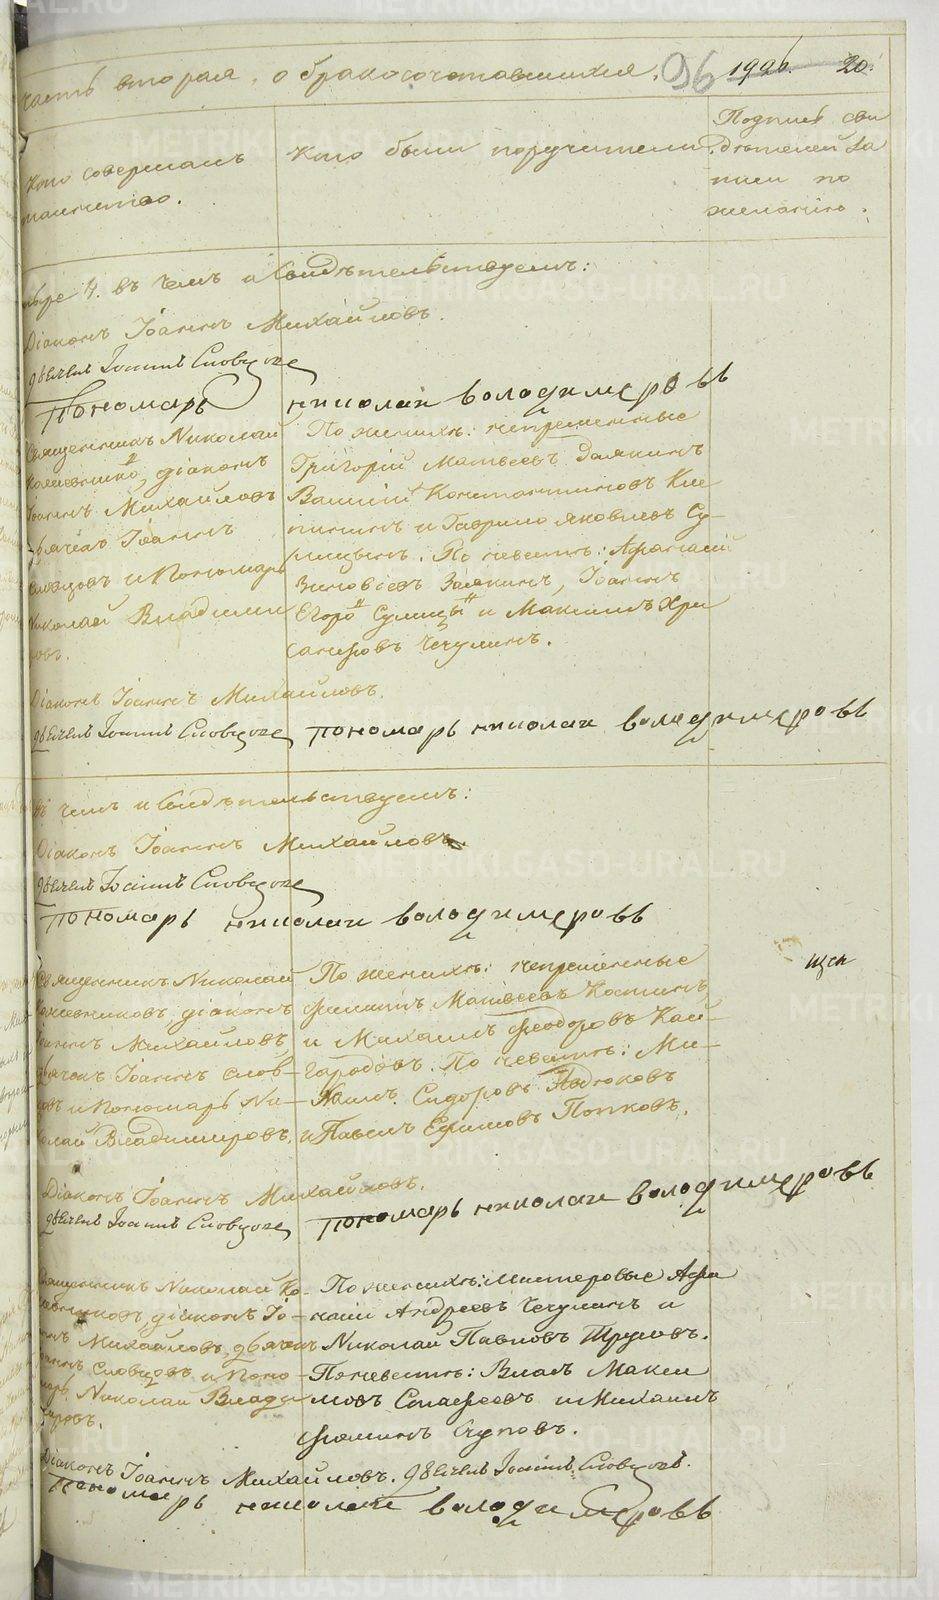 часть вторая, о бракосочетавшихся. 96 1996. 20.
Кто совершалъ
таинство.
Кто были поручители.
Подписи сви
дѣтелей за
писи по
желанію.
бре 4. въ чемъ и свидѣтельствуемъ:
Діаконъ Іоаннъ Михайловъ.
дьячекъ Іоаннъ Словцовъ
Пономарь николаи володимеровъ
Священникъ Николай
діаконъ
Іоаннъ Михайловъ
дьячекъ Іоаннъ
Словцовъ и Пономарь
Николай Владими
ровъ.
По женихѣ: непременные
Григорій Матвеевъ Заякинъ
Василій Константиновъ Кле
пининъ и Гаврило Яковлевъ Су-
лицынъ. По невестѣ: Афанасій
Зиновіевъ Заякинъ, Іоаннъ
Егоро Сулицы и Максимъ Хри
санфовъ Чечулинъ.
Діаконъ Іоаннъ Михайловъ.
дьячекъ Іоаннъ Словцовъ пономарь николаи володимеровъ
въ чемъ и свидѣтельствуемъ:
Діаконъ Іоаннъ Михайловъ.
дьячекъ Іоаннъ Словцовъ
пономарь николаи володимеровъ
Священникъ Николай
діаконъ
Іоаннъ Михайловъ
дьячекъ Іоаннъ Слов-
цовъ и Пономарь Ни-
колай Владимировъ.
По женихѣ: непременные
Филипъ Матвеевъ Костинъ
и Михаилъ Феодоровъ Кай-
городовъ. По невестѣ: Ми-
хаилъ Сидоровъ
и Павелъ Ефимовъ Попковъ.
Діаконъ Іоаннъ Михайловъ.
дьячекъ Іоаннъ Словцовъ пономарь николаи володимеровъ
Священникъ Николай Ко-
діаконъ Іо-
аннъ Михайловъ, дьячекъ
Іоаннъ Словцовъ и Поно-
марь Николай Влади
мировъ.
По женихѣ: Мастеровые Афа
насій Андреевъ Чечулинъ и
Николай Павловъ Трусовъ.
По невестѣ: Власъ Макси
мовъ и Михаилъ
Фоминъ
Діаконъ Іоаннъ Михайловъ. дьячекъ Іоаннъ Словцовъ.
Пономарь николаи володимеровъ
METRIKI.GASO-URAL.RU